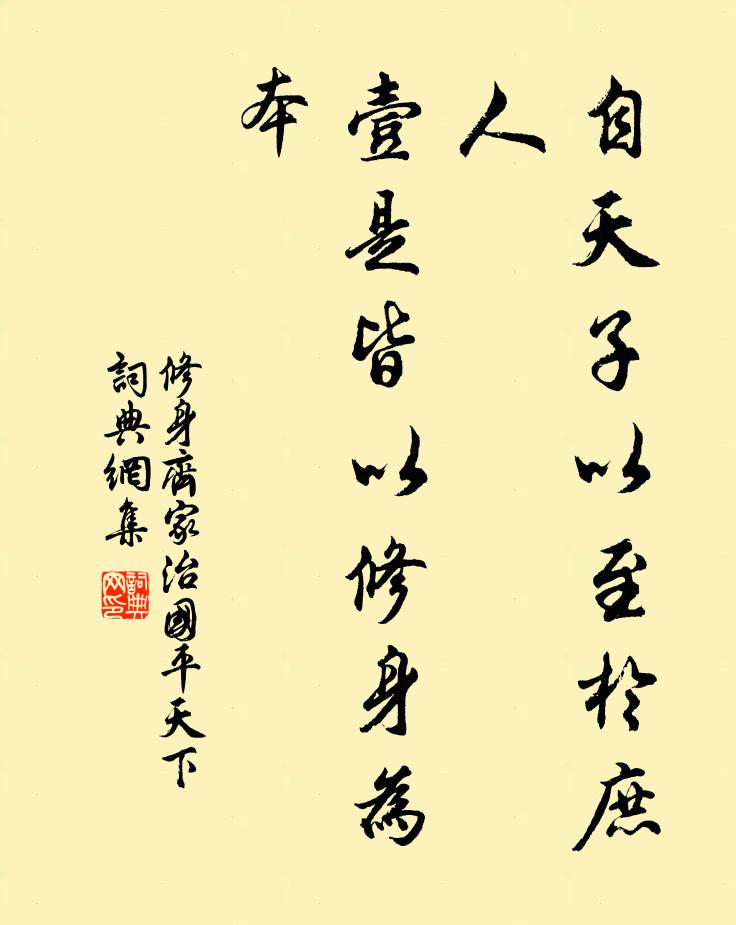 自天子以至於庶
人
壹是皆以修身為
本
修身齊家治國平天下
詞典網集
詞典
网印